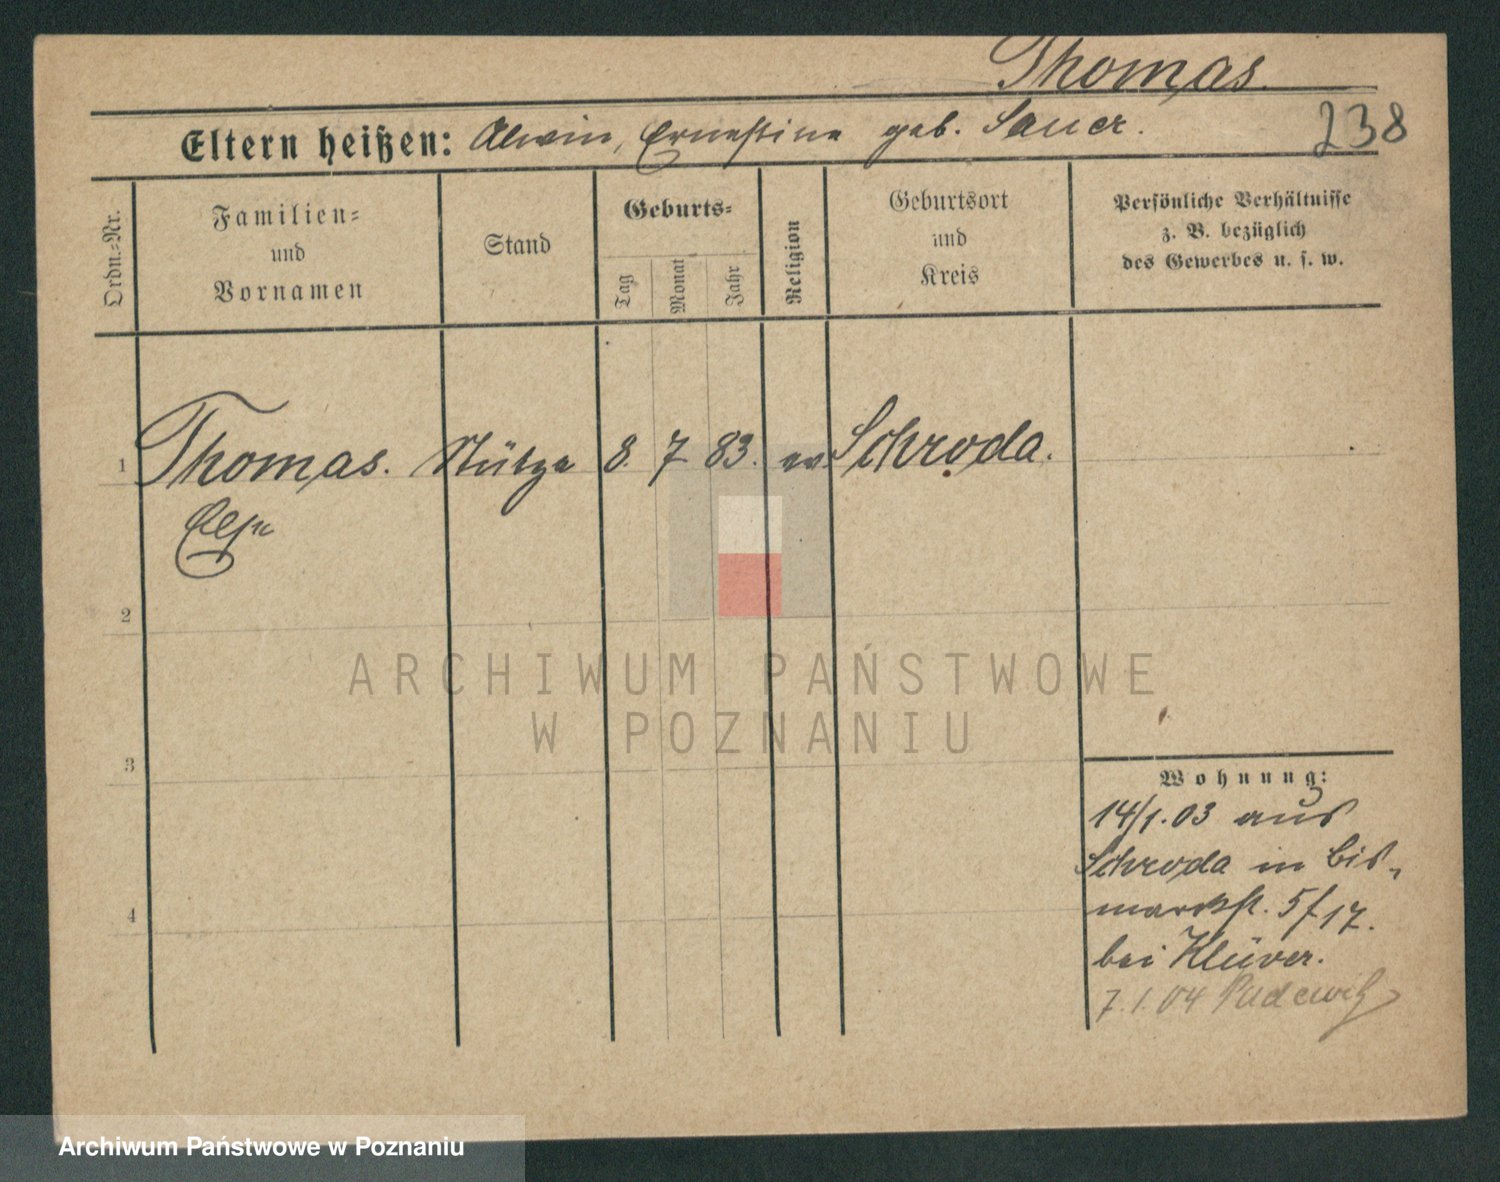 Thomas.
238
Eltern heißen: Alwin, Ernestine geb. Sauer.
Ordn.-Nr.
Familien-
und
Vornamen
Stand
Geburts-
Tag
Monat
Jahr
Religion
Geburtsort
und
Kreis
Persönliche Verhältnisse
z. B. bezüglich
des Gewerbes u. s. w.
1 Thomas. Stütze 8. 7 83. ev Schroda.
Else
2
3
4
Wohnung:
14/1.03 aus
Schroda in Bis-
marckst. 5 f 17.
bei Klüver.
7.1.04 Pudewitz
ARCHIWUM PAŃSTWOWE
W POZNANIU
Archiwum Państwowe w Poznaniu